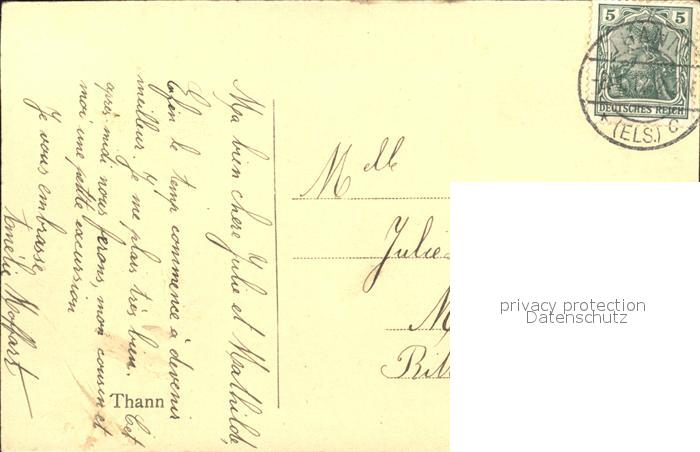 Ma bien chère Julie et Mathilde,
Enfin le temps commence à devenir
meilleur. Je me plais très bien. Cet
après midi nous ferons, mon cousin et
moi une petite excursion
Je vous embrasse
Amélie
Thann
Mlle
Julie
M
Rib
5 5
DEUTSCHES REICH
THANN
* (ELS.) c
privacy protection
Datenschutz